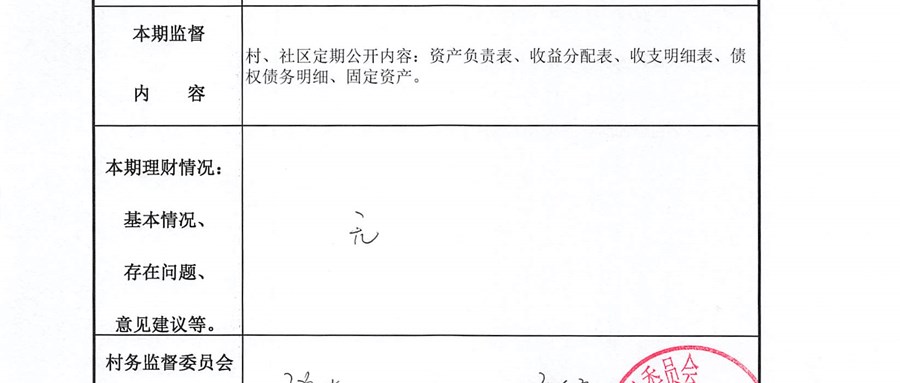 本期监督
内 容
村、社区定期公开内容：资产负责表、收益分配表、收支明细表、债
权债务明细、固定资产。
本期理财情况：
基本情况、
存在问题、
意见建议等。
村务监督委员会
委员会